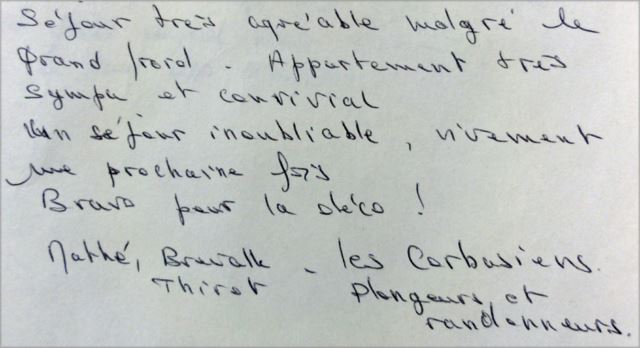 Séjour très agréable malgré le
grand froid. Appartement très
sympa et convivial
Un séjour inoubliable, vivement
une prochaine fois
Bravo pour la déco !
Mathé, - les Corbasiens.
Thirot Plongeurs et
randonneurs.